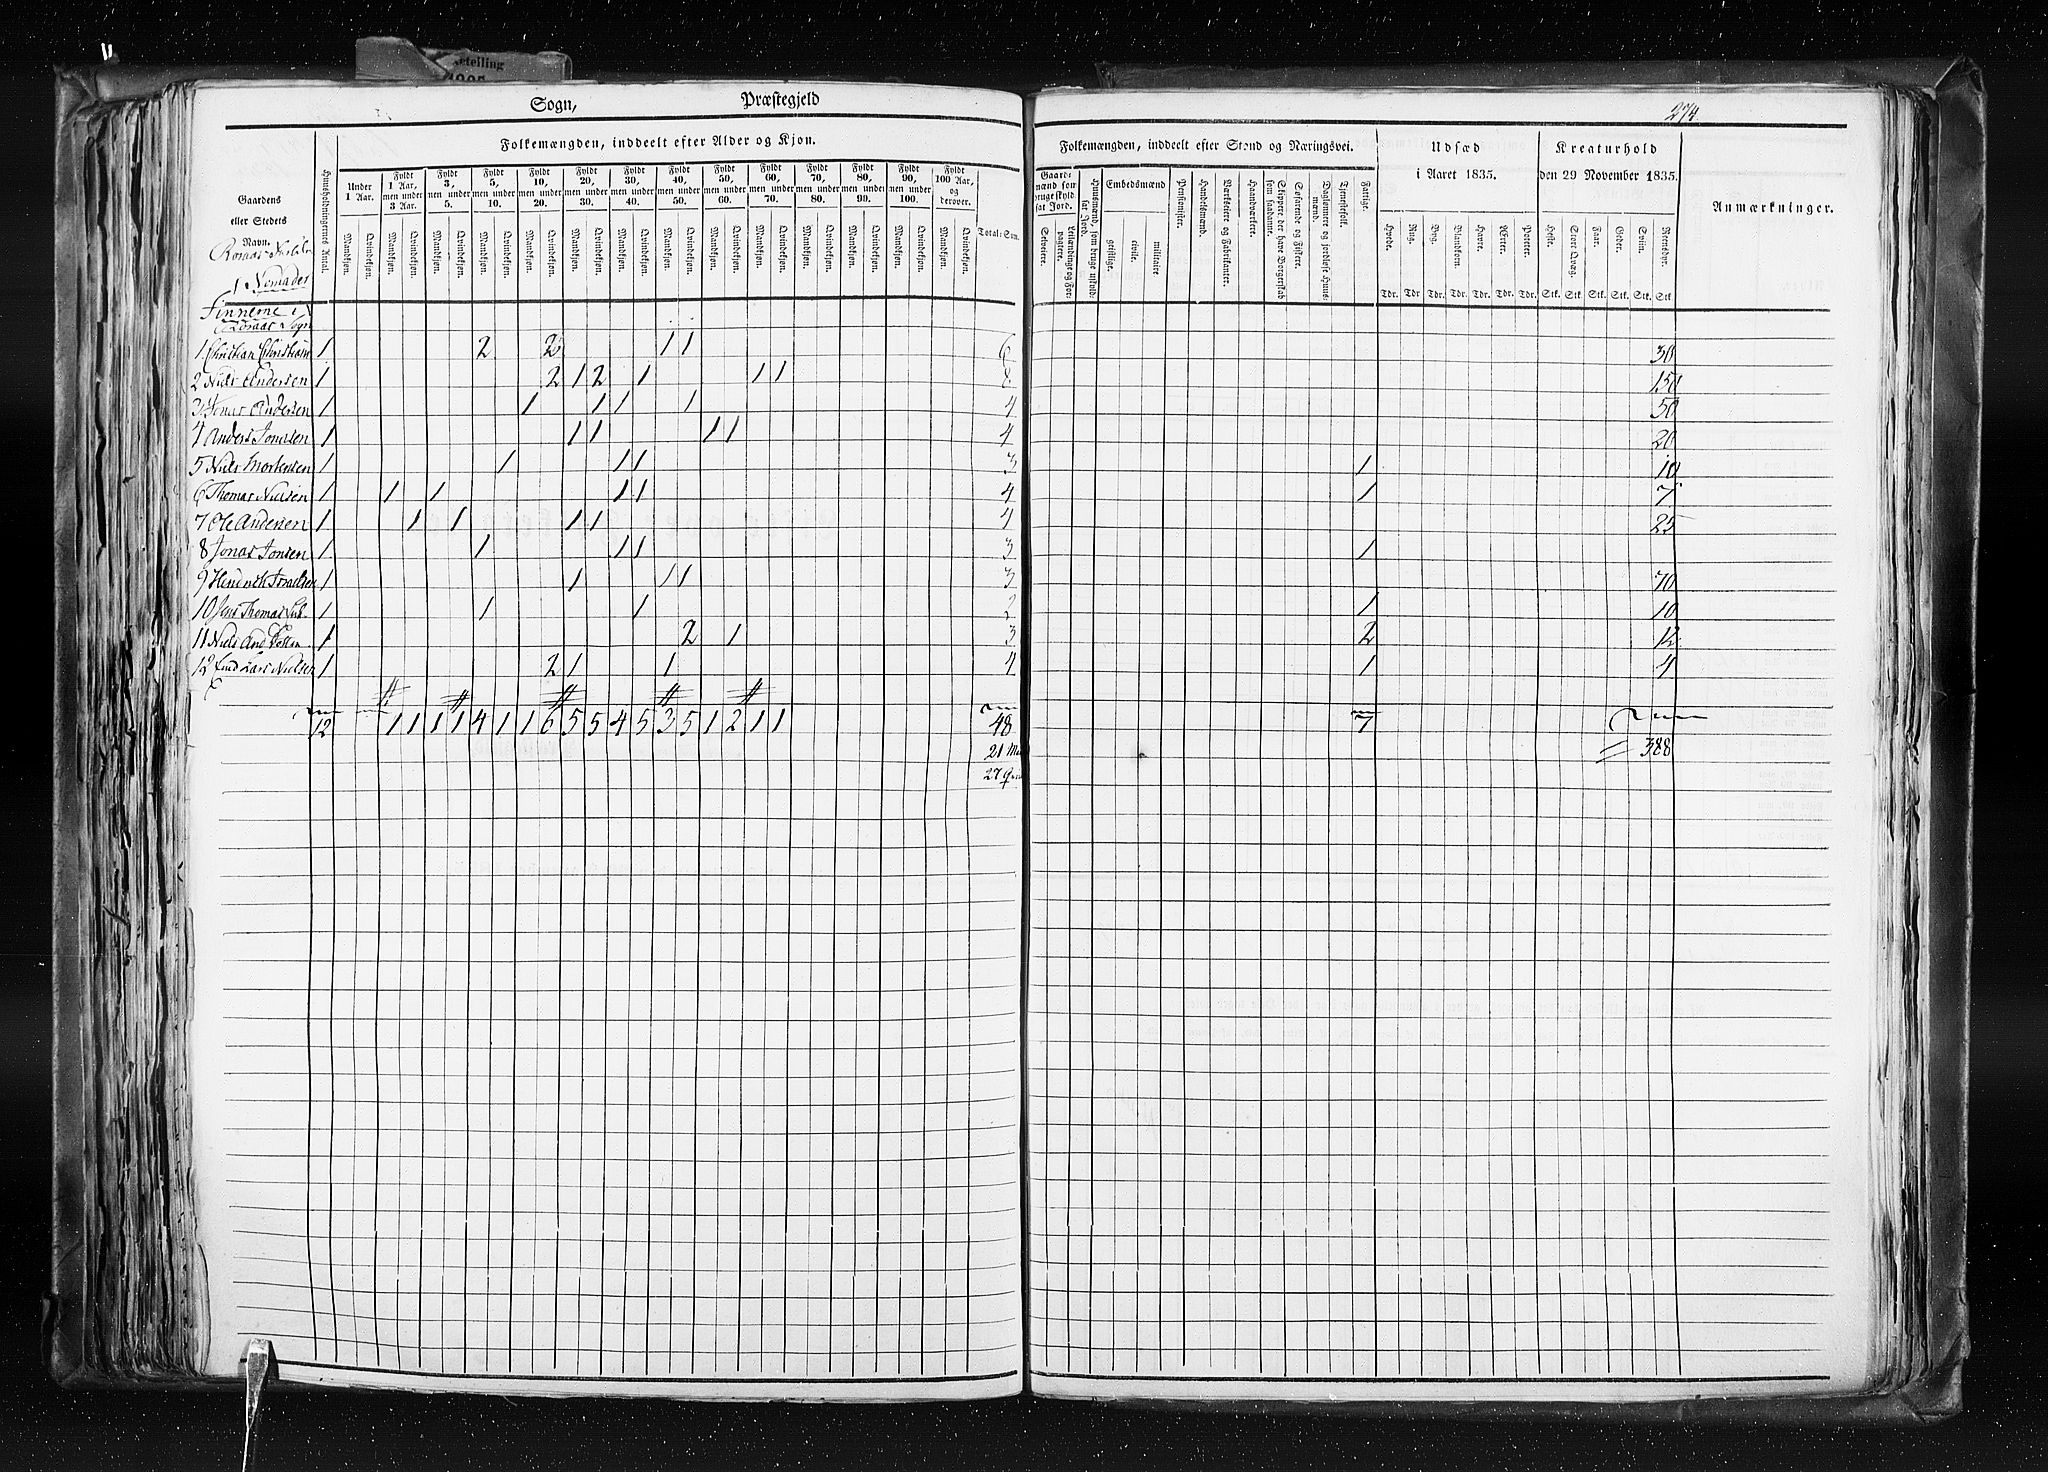 Sogn, Præstegjeld
274
Folkemængden, inddeelt efter Alder og Kjøn.
Folkemængden, inddeelt efter Stand og Næringsvei.
Udsæd i Aaret 1835.
Kreaturhold den 29 November 1835.
Anmærkninger.
Gaardens eller Stedets Navn.
Huusholdningernes Antal.
Under 1 Aar.
Fyldt 1 Aar, men under 3 Aar.
Fyldt 3, men under 5.
Fyldt 5, men under 10.
Fyldt 10, men under 20.
Fyldt 20, men under 30.
Fyldt 30, men under 40.
Fyldt 40, men under 50.
Fyldt 50, men under 60.
Fyldt 60, men under 70.
Fyldt 70, men under 80.
Fyldt 80, men under 90.
Fyldt 90, men under 100.
Fyldt 100 Aar, og derover.
Mandkjøn. Qvindekjøn.
Total-Sum.
Gaardmænd som bruge skyldsat Jord.
Selveiere.
Leilændinge og Forpagtere.
Huusmænd, som bruge uskyldsat Jord.
Embedsmænd
geistlige. civile. militaire
Pensionister.
Handelsmænd.
Værkseiere og Fabrikanter.
Haandværkere.
Skippere, der have Borgerskab som saadanne.
Søfarende og Fiskere.
Daglønnere og jordløse Huusmænd.
Tjenestefolk.
Fattige.
Hvede. Rug. Byg. Blandkorn. Havre. Ærter. Poteter.
Tdr. Tdr Tdr. Tdr. Tdr. Tdr. Tdr.
Heste. Stort Qvæg. Faar. Geder. Sviin. Rensdyr.
Stk. Stk. Stk. Stk. Stk. Stk
Nomader
Finnerne i
Sogn
1 Christian Christians 1 2 2 1 1 6 30
2 Niels Andersen 1 2 1 2 1 1 1 8 150
3 Jonas Andersen 1 1 1 1 1 4 50
4 Anders Jonsen 1 1 1 1 1 4 20
5 Niels Mortensen 1 1 1 1 3 1 10
6 Thomas Nielsen 1 1 1 1 1 4 1 7
7 Ole Andersen 1 1 1 1 1 4 25
8 Jonas Jonsen 1 1 1 1 3 1
9 Henrich Israelsen 1 1 1 1 3 70
10 Jens Thomas 1 1 1 2 1 10
11 Niels And 1 2 1 3 2 12
12 Nielsen 1 2 1 1 4 1 4
12 1 1 1 1 4 1 1 6 5 5 4 5 3 5 1 2 1 1 48 7
21 M
27 Q
388